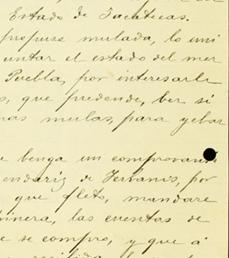 Estado de Zacatecas.
propuse mulada, lo mi
untar el estado del mer
Puebla, por interesarle
s, que predende, ber si
nas mulas, para yebar
e benga un comprovan
endariz de Servanis, por
que fleto, mandare
innera, las cuentas de
e se compro, y que á